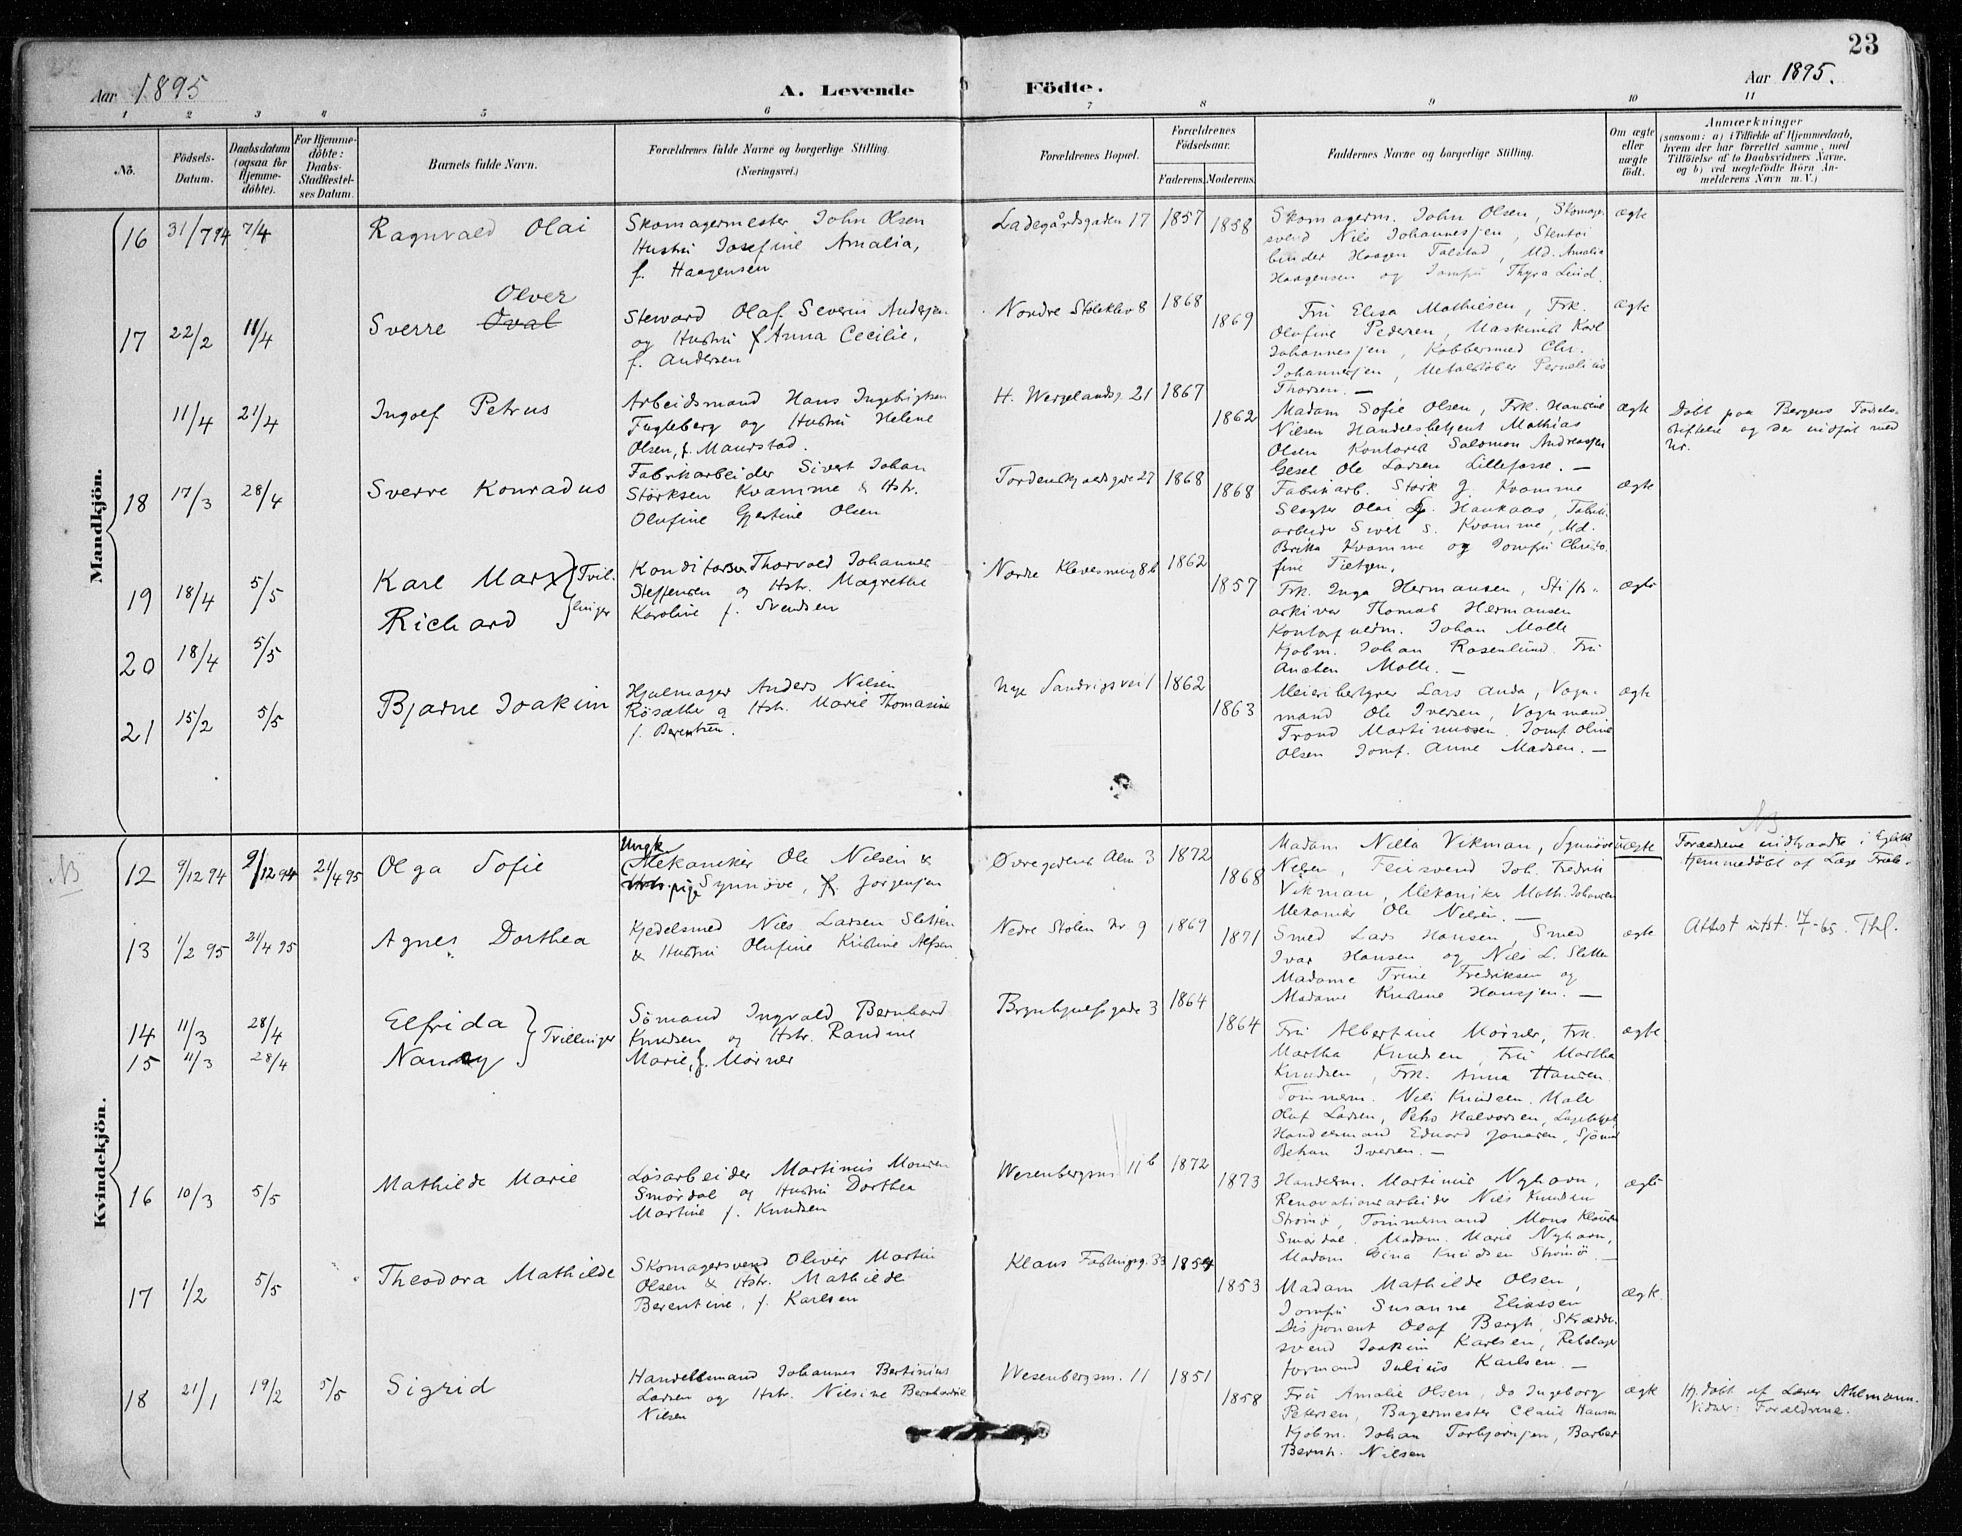 23
Aar 1895
A. Levende Födte.
Aar 1895.
1 2 3 4 5 6 7 8 9 10 11
Nö.
Födsels-Datum.
Daabsdatum (ogsaa for Hjemme-döbte).
For Hjemme-döbte: Daabs-Stadfæstel-ses Datum.
Barnets fulde Navn.
Forældrenes fulde Navne og borgerlige Stilling. (Næringsvei.)
Forældrenes Bopæl.
Forældrenes Födselsaar.
Faderens. Moderens.
Faddernes Navne og borgerlige Stilling.
Om ægte eller uægte födt.
Anmærkninger
(saasom: a) i Tilfælde af Hjemmedaab, hvem der har forrettet samme, med Tilföielse af to Daabsvidners Navne, og b) ved uægtefödte Börn An-melderens Navn m.V.)
Mandkjön.
16 31/7 94 7/4 Ragnvald Olai
Skomagermester John Olsen
Hustru Josefine Amalia,
f. Haagensen
Ladegårdsgaden 17 1857 1858
Skomagerm. John Olsen, Skomager-
svend Nils Johannesjen,
binder Haagen Talstad, Md. Amalia
Haagensen og Jomfru Thyra Lind.
ægte
17 22/2 11/4 Sverre Oval Olver
Steward Olaf Severin Andersen
og Hustru Anna Cecilie,
f. Andersen
Nordre Stöleklev 8 1868 1869
Fru Elisa Mathiesen, Frk.
Olufine Pedersen, Maskinist Karl
Johannesjen, Kobbersmed Chr.
Johannesjen, Metalstöber Pernelius
Thorsen. —
ægte
11/4 21/4 Ingolf Petrus
Arbeidsmand Hans Ingebrigtsen
Fugleberg og Hustru Helene
Olsen, f. Maurstad.
H. Wergelandsg. 21 1867 1862
Madam Sofie Olsen, Frk. Hansine
Nilsen Handelsbetjent Mathias
Olsen Kontorist Salomon Andreassen
Gesel Ole Larsen Lillefosse. —
ægte
Döbt paa Bergens Födsels-
stiftelse og der indfört med
Nr.
18 17/3 28/4 Sverre Konradus
Fabrikarbeider Sivert Johan
Störksen Kvamme & Hstr.
Olufine Gjertine Olsen
Tordenskjoldsgade 27 1868 1868
Fabrikarb. Störk J. Kvamme
Slagter Olai Haukaas, Fabrik-
arbeider Sivert S. Kvamme, Md.
Britha Kvamme og Jomfru Christo-
fine Tietgen.
ægte
19 18/4 5/5 Karl Marx
20 18/4 5/5 Richard
Tvil-
linger
Konditorsv. Thorvald Johannes
Steffensen og Hstr. Magrethe
Karoline f. Svendsen
Nordre Klevesmug 8b 1862 1857
Frk. Inga Hermansen, Stifts-
arkivar Thomas Hermansen
Kontorfuldm. Johan Molle
Kjöbm. Johan Rosenlund. Fru
Anchen Molle. —
ægte
21 15/2 5/5 Bjarne Joakim
Hjulmager Anders Nilsen
Rösæthe og Hstr. Marie Thomasine
f. Berentsen.
Nye Sandvigsvei 1 1862 1863
Meieribestyrer Lars Anda, Vogn-
mand Ole Iversen, Vognmand
Trond Martinussen. Jomf. Oline
Olsen Jomf. Anne Madsen. —
ægte
Kvindekjön.
NB 12 9/12 94 9/12 94 21/4 95 Olga Sofie
Ungk.
Mekaniker Ole Nilsen &
Hstr. pige Synnöve, f. Jörgensen
Övregadens Alm. 3 1872 1868
Madam Nilla Vikman, Synnöve
Nilsen, Feiersvend Joh. Fredrik
Vikman, Mekaniker Math. Johansen
Mekaniker Ole Nilsen. —
uægte
NB
Forældrene indtraadte i Egteskab
Hjemmedöbt af Læge
13 1/2 95 21/4 95 Agnes Dorthea
Kjedelsmed Nils Larsen Sletten
& Hustru Olufine Kristine Alfsen
Nedre Stölen Nr 9 1869 1871
Smed Lars Hansen, Smed
Ivar Hansen og Nils L. Sletten
Madame Trine Fredriksen og
Madame Kristine Hansjen. —
ægte
Attest utst. -65. Thl.
14 11/3 28/4 Elfrida
15 11/3 28/4 Nancy
Tvillinger
Sömand Ingvald Bernhard
Knudsen og Hstr. Randine
Marie, f. Mörner
Brynhjulfsgade 3 1864 1864
Fru Albertine Mörner, Frk.
Martha Knudsen, Fru Martha
Knudsen, Frk. Anna Hansen
Tömmerm. Nils Knudsen. Maler
Olaf Larsen, Peter Halvorsen,
Handelsmand Edvard Jonasen, Sjömand
Iversen. —
ægte
16 10/3 5/5 Mathilde Marie
Lösarbeider Martinus Monsen
Smördal og Hustru Dorthea
Martine f. Knudsen
Wesenbergsm. 11b 1872 1873
Handelsm. Martinus Nyhavn,
Renovationsarbeider Nils Knudsen
Strömö, Tömmermand Mons Klausen
Smördal. Madam Marie Nyhavn,
Madam Gina Knudsen Strömö. —
ægte
17 1/2 5/5 Theodora Mathilde
Skomagersvend Oliver Martin
Olsen & Hstr. Mathilde
Berentine, f. Karlsen
Klaus Fastingsg. 33 1854 1853
Madam Mathilde Olsen,
Jomfru Susanne Eliassen
Disponent Olaf Bergh, Skrædder-
svend Joakim Karlsen, Rebslager
formand Julius Karlsen. —
ægte.
18 21/1 19/2 5/5 Sigrid
Handelsmand Johannes Bertinius
Larsen og Hstr. Nilsine Bernhardine
Nilsen
Wesenbergsm. 11 1851 1858
Fru Amalie Olsen, do Ingeborg
Petersen, Bagermester Claus Hansen
Kjöbm. Johan Torbjörnsen, Barber
Bernh. Nilsen
ægte
Hj.döbt af Lærer Ahlmann.
Vidner: Forældrene.